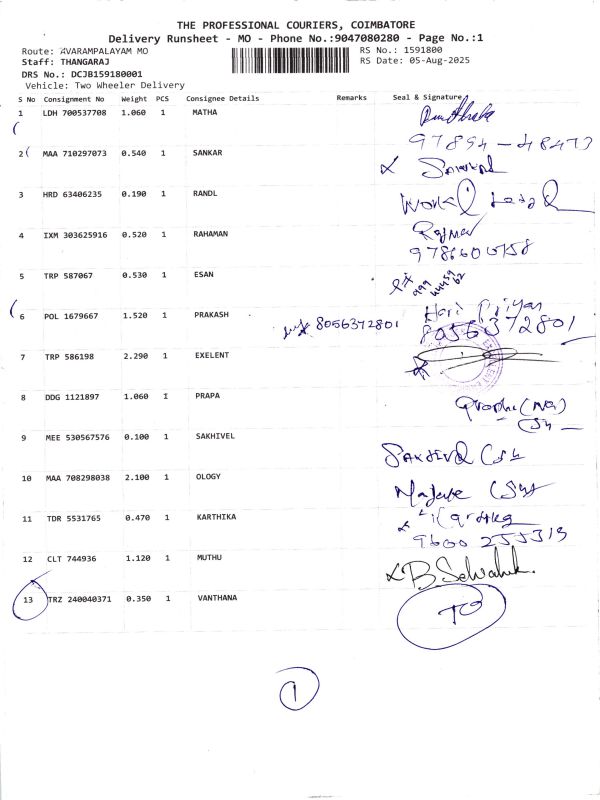 THE PROFESSIONAL COURIERS, COIMBATORE
Delivery Runsheet - MO - Phone No.:9047080280 - Page No.:1
Route: AVARAMPALAYAM MO RS No.: 1591800
Staff: THANGARAJ RS Date: 05-Aug-2025
DRS No.: DCJB159180001
Vehicle: Two Wheeler Delivery
S No Consignment No Weight PCS Consignee Details Remarks Seal & Signature
1 LDH 700537708 1.060 1 MATHA
97894-48473
2 MAA 710297073 0.540 1 SANKAR
3 HRD 63406235 0.190 1 RANDL
4 IXM 303625916 0.520 1 RAHAMAN
5 TRP 587067 0.530 1 ESAN
6 POL 1679667 1.520 1 PRAKASH 8056372801 Hari Priyan
8056372801
7 TRP 586198 2.290 1 EXELENT
8 DDG 1121897 1.060 1 PRAPA
9 MEE 530567576 0.100 1 SAKHIVEL
10 MAA 708298038 2.100 1 OLOGY
11 TDR 5531765 0.470 1 KARTHIKA
9600 255319
12 CLT 744936 1.120 1 MUTHU
13 TRZ 240040371 0.350 1 VANTHANA TO
1